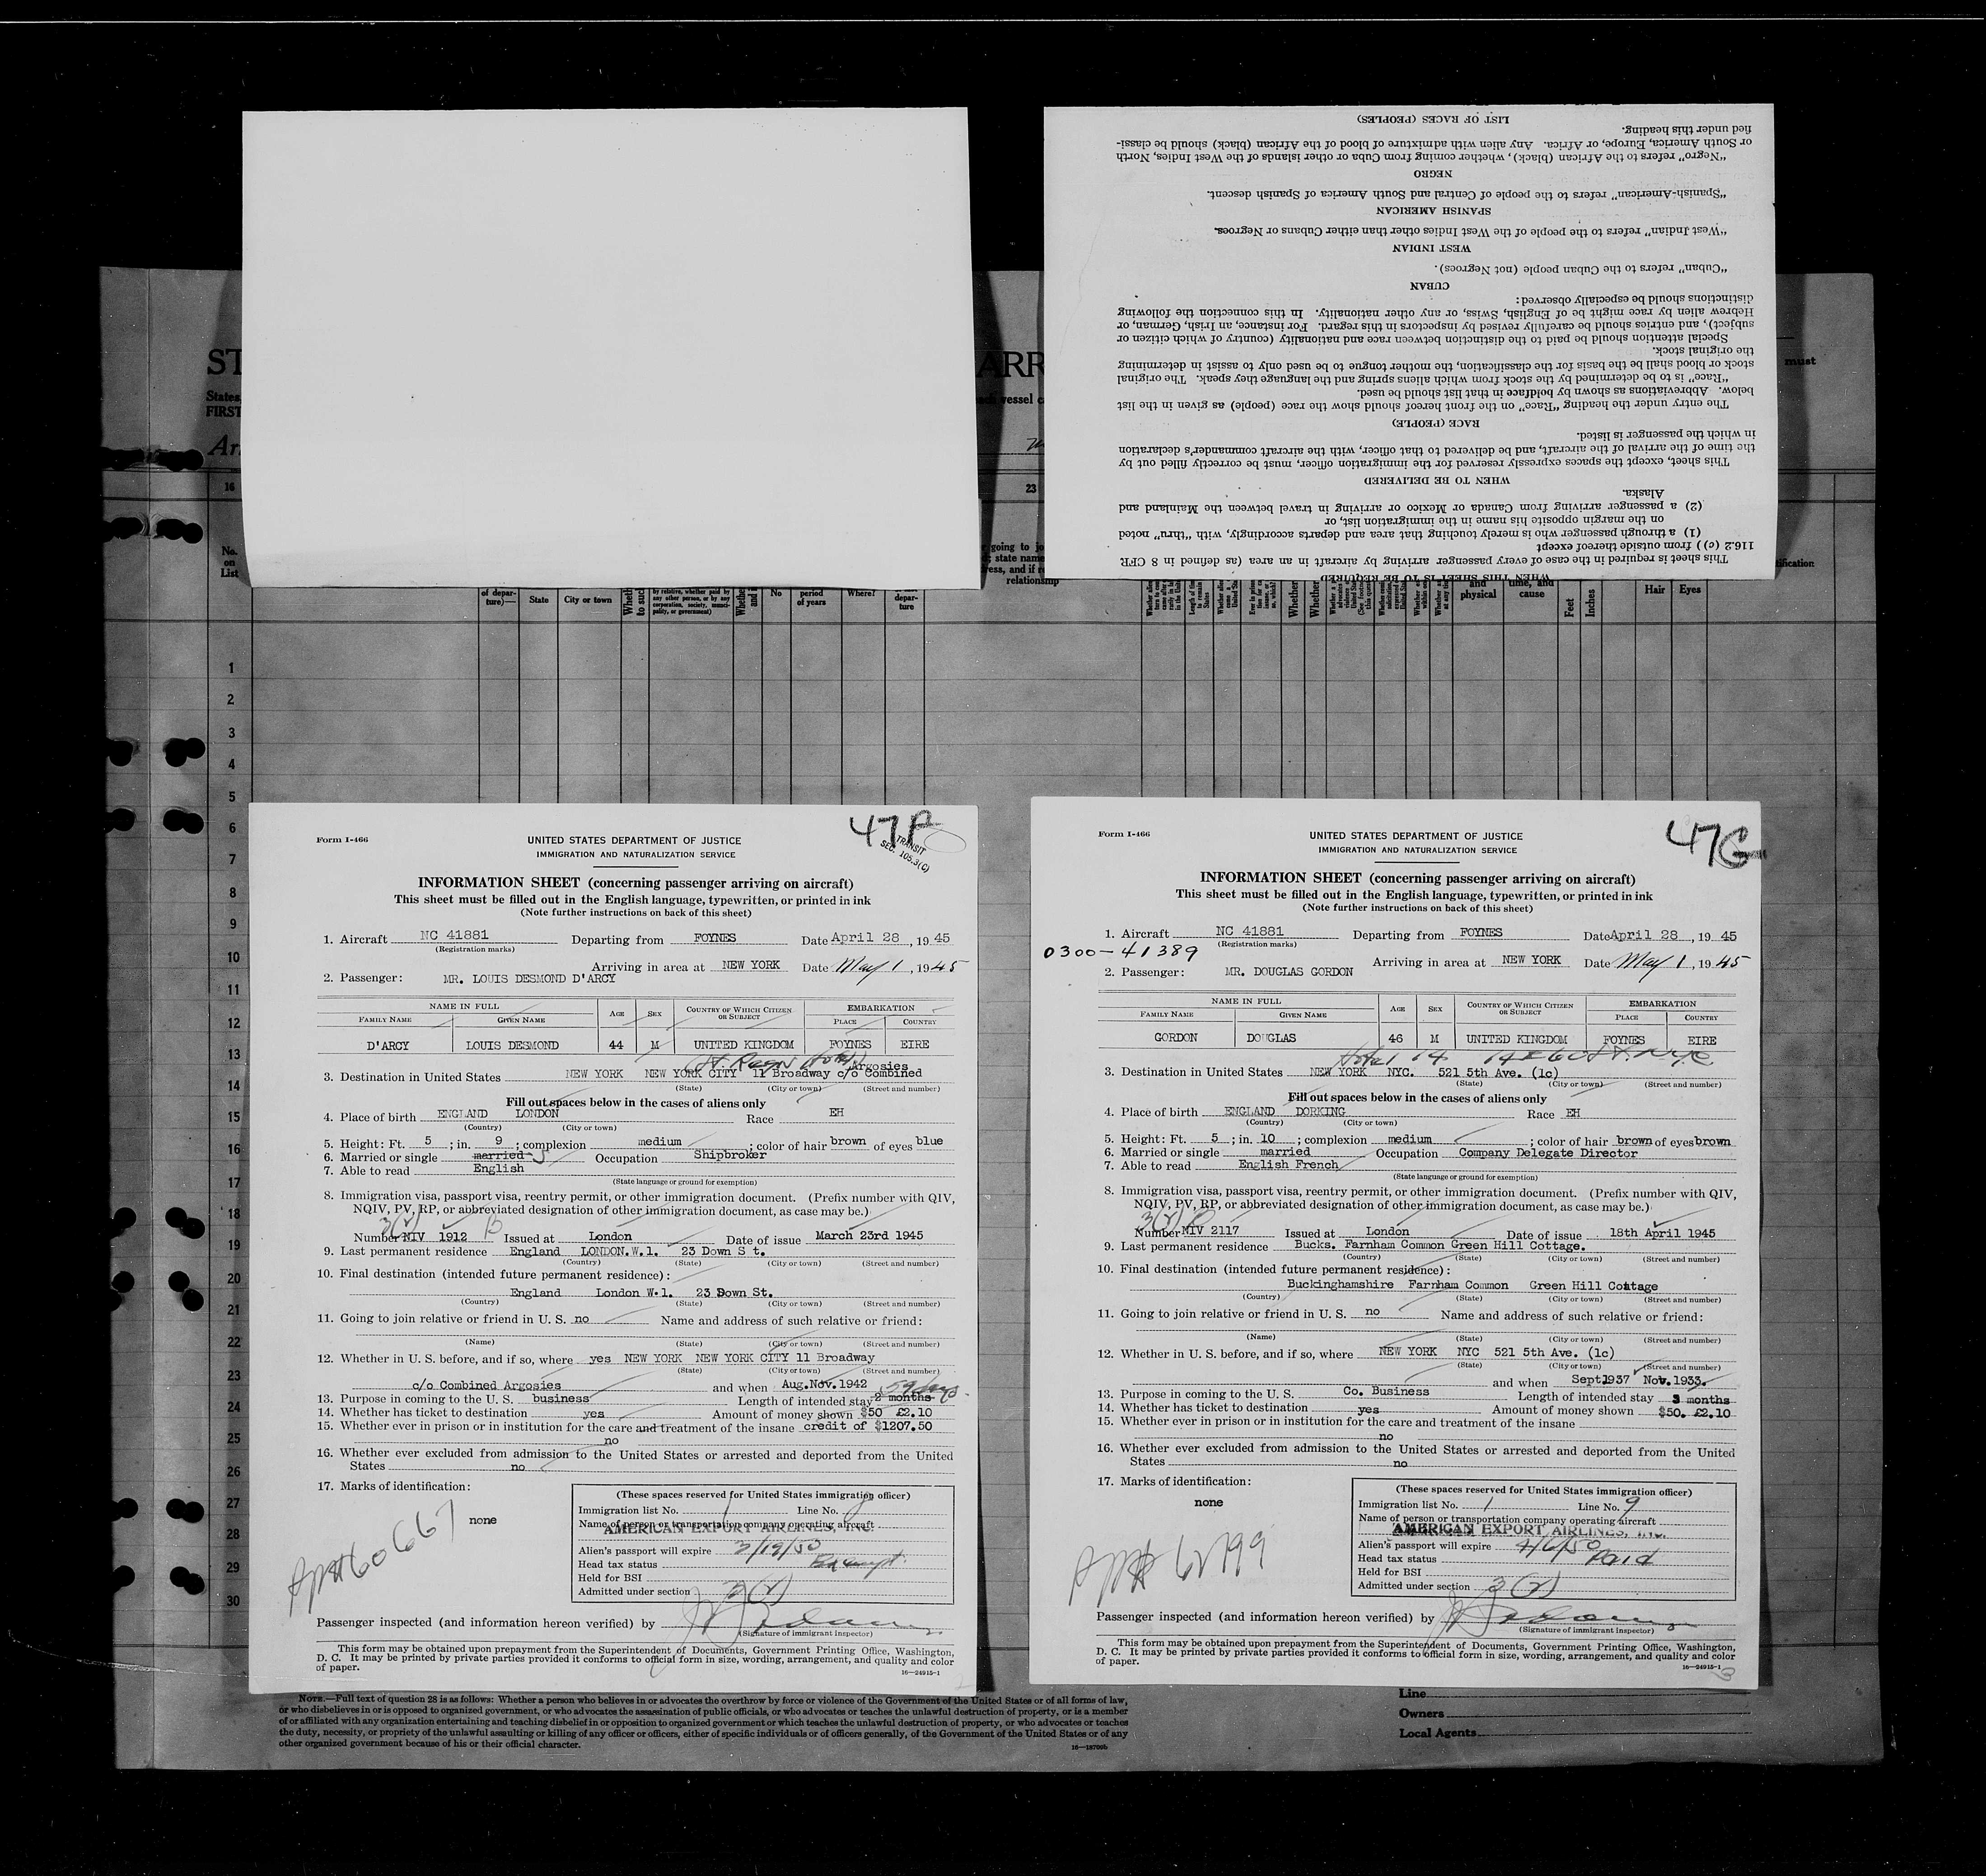 LIST OF RACES (PEOPLES)
fied under this heading.
or South America, Europe, or Africa. Any alien with admixture of blood of the African (black) should be classi-
"Negro" refers to the African (black), whether coming from Cuba or other islands of the West Indies, North
NEGRO
"Spanish-American" refers to the people of Central and South America of Spanish descent.
SPANISH AMERICAN
"West Indian" refers to the people of the West Indies other than either Cubans or Negroes.
WEST INDIAN
"Cuban" refers to the Cuban people (not Negroes).
CUBAN
distinctions should be especially observed:
Hebrew alien by race might be of English, Swiss, or any other nationality. In this connection the following
subject), and entries should be carefully revised by inspectors in this regard. For instance, an Irish, German, or
Special attention should be paid to the distinction between race and nationality (country of which citizen or
the original stock.
stock or blood shall be the basis for the classification, the mother tongue to be used only to assist in determining
"Race" is to be determined by the stock from which aliens spring and the language they speak. The original
below. Abbreviations as shown by boldface in that list should be used.
The entry under the heading "Race" on the front hereof should show the race (people) as given in the list
RACE (PEOPLE)
in which the passenger is listed.
the time of the arrival of the aircraft, and be delivered to that officer, with the aircraft commander's declaration
This sheet, except the spaces expressly reserved for the immigration officer, must be correctly filled out by
WHEN TO BE DELIVERED
Alaska.
(2) a passenger arriving from Canada or Mexico or arriving in travel between the Mainland and
on the margin opposite his name in the immigration list, or
(1) a through passenger who is merely touching that area and departs accordingly, with "thru" noted
116.2 (c)) from outside thereof except
This sheet is required in the case of every passenger arriving by aircraft in an area (as defined in 8 CFR
WHEN THIS SHEET IS TO BE REQUIRED
ST ARR must
States
FIRST
16 23
No.
on
List
going to jo
relationship
of depar-
ture)—
State
City or town
by relative, whether paid by
any other person, or by any
corporation, society, munici-
pality, or government)
No
period
of years
Where?
depar-
ture
and
physical
time, and
cause
Feet
Inches
Hair
Eyes
1
2
3
4
5
6
7
8
9
10
11
12
13
14
15
16
17
18
19
20
21
22
23
24
25
26
27
28
29
30
47F
TRANSIT
SEC. 105.3(C)
Form I-466
UNITED STATES DEPARTMENT OF JUSTICE
IMMIGRATION AND NATURALIZATION SERVICE
INFORMATION SHEET (concerning passenger arriving on aircraft)
This sheet must be filled out in the English language, typewritten, or printed in ink
(Note further instructions on back of this sheet)
1. Aircraft NC 41881 Departing from FOYNES Date April 28, 1945
(Registration marks)
Arriving in area at NEW YORK Date May 1, 1945
2. Passenger: MR. LOUIS DESMOND D'ARCY
NAME IN FULL AGE SEX COUNTRY OF WHICH CITIZEN OR SUBJECT EMBARKATION
FAMILY NAME GIVEN NAME PLACE COUNTRY
D'ARCY LOUIS DESMOND 44 M UNITED KINGDOM FOYNES EIRE
St. Regis Hotel
Argosies
3. Destination in United States NEW YORK NEW YORK CITY 11 Broadway c/o Combined
(State) (City or town) (Street and number)
Fill out spaces below in the cases of aliens only
4. Place of birth ENGLAND LONDON Race EH
(Country) (City or town)
5. Height: Ft. 5; in. 9; complexion medium; color of hair brown of eyes blue
6. Married or single married S Occupation Shipbroker
7. Able to read English
(State language or ground for exemption)
8. Immigration visa, passport visa, reentry permit, or other immigration document. (Prefix number with QIV,
NQIV, PV, RP, or abbreviated designation of other immigration document, as case may be.)
3(2) B
Number NIV 1912 Issued at London Date of issue March 23rd 1945
9. Last permanent residence England LONDON.W.1. 23 Down S t.
(Country) (State) (City or town) (Street and number)
10. Final destination (intended future permanent residence):
England London W.1. 23 Down St.
(Country) (State) (City or town) (Street and number)
11. Going to join relative or friend in U. S. no Name and address of such relative or friend:
(Name) (State) (City or town) (Street and number)
12. Whether in U. S. before, and if so, where yes NEW YORK NEW YORK CITY 11 Broadway
(State) (City or town) (Street and number)
c/o Combined Argosies and when Aug.Nov.1942
59 days
13. Purpose in coming to the U. S. business Length of intended stay 2 months
14. Whether has ticket to destination yes Amount of money shown $50 £2.10
15. Whether ever in prison or in institution for the care and treatment of the insane credit of $1207.50
no
16. Whether ever excluded from admission to the United States or arrested and deported from the United
States no
17. Marks of identification:
none
(These spaces reserved for United States immigration officer)
Immigration list No. 1 Line No. 8
Name of person or transportation company operating aircraft
AMERICAN EXPORT AIRLINES, INC.
Alien's passport will expire 3/19/50
Head tax status Exempt
Held for BSI
Admitted under section 3(2)
App#60667
Passenger inspected (and information hereon verified) by
(Signature of immigrant inspector)
This form may be obtained upon prepayment from the Superintendent of Documents, Government Printing Office, Washington,
D. C. It may be printed by private parties provided it conforms to official form in size, wording, arrangement, and quality and color
of paper. 16—24915-1
47G
Form I-466
UNITED STATES DEPARTMENT OF JUSTICE
IMMIGRATION AND NATURALIZATION SERVICE
INFORMATION SHEET (concerning passenger arriving on aircraft)
This sheet must be filled out in the English language, typewritten, or printed in ink
(Note further instructions on back of this sheet)
1. Aircraft NC 41881 Departing from FOYNES Date April 28, 1945
(Registration marks)
0300-41389
Arriving in area at NEW YORK Date May 1, 1945
2. Passenger: MR. DOUGLAS GORDON
NAME IN FULL AGE SEX COUNTRY OF WHICH CITIZEN OR SUBJECT EMBARKATION
FAMILY NAME GIVEN NAME PLACE COUNTRY
GORDON DOUGLAS 46 M UNITED KINGDOM FOYNES EIRE
Hotel 14 14 E 60 St. NYC
3. Destination in United States NEW YORK NYC. 521 5th Ave. (1c)
(State) (City or town) (Street and number)
Fill out spaces below in the cases of aliens only
4. Place of birth ENGLAND DORKING Race EH
(Country) (City or town)
5. Height: Ft. 5; in. 10; complexion medium; color of hair brown of eyes brown
6. Married or single married Occupation Company Delegate Director
7. Able to read English French
(State language or ground for exemption)
8. Immigration visa, passport visa, reentry permit, or other immigration document. (Prefix number with QIV,
NQIV, PV, RP, or abbreviated designation of other immigration document, as case may be.)
3(2) B
Number NIV 2117 Issued at London Date of issue 18th April 1945
9. Last permanent residence Bucks. Farnham Common Green Hill Cottage.
(Country) (State) (City or town) (Street and number)
10. Final destination (intended future permanent residence):
Buckinghamshire Farnham Common Green Hill Cottage
(Country) (State) (City or town) (Street and number)
11. Going to join relative or friend in U. S. no Name and address of such relative or friend:
(Name) (State) (City or town) (Street and number)
12. Whether in U. S. before, and if so, where NEW YORK NYC 521 5th Ave. (1c)
(State) (City or town) (Street and number)
and when Sept.1937 Nov.1933.
13. Purpose in coming to the U. S. Co. Business Length of intended stay 3 months
14. Whether has ticket to destination yes Amount of money shown $50. £2.10
15. Whether ever in prison or in institution for the care and treatment of the insane
no
16. Whether ever excluded from admission to the United States or arrested and deported from the United
States no
17. Marks of identification:
none
(These spaces reserved for United States immigration officer)
Immigration list No. 1 Line No. 9
Name of person or transportation company operating aircraft
AMERICAN EXPORT AIRLINES, INC.
Alien's passport will expire 4/6/50
Head tax status Paid
Held for BSI
Admitted under section 3(2)
Passenger inspected (and information hereon verified) by
(Signature of immigrant inspector)
This form may be obtained upon prepayment from the Superintendent of Documents, Government Printing Office, Washington,
D. C. It may be printed by private parties provided it conforms to official form in size, wording, arrangement, and quality and color
of paper. 16—24915-1
NOTE.—Full text of question 28 is as follows: Whether a person who believes in or advocates the overthrow by force or violence of the Government of the United States or of all forms of law,
or who disbelieves in or is opposed to organized government, or who advocates the assassination of public officials, or who advocates or teaches the unlawful destruction of property, or is a member
of or affiliated with any organization entertaining and teaching disbelief in or opposition to organized government or which teaches the unlawful destruction of property, or who advocates or teaches
the duty, necessity, or propriety of the unlawful assaulting or killing of any officer or officers, either of specific individuals or of officers generally, of the Government of the United States or of any
other organized government because of his or their official character.
Line
Owners
Local Agents